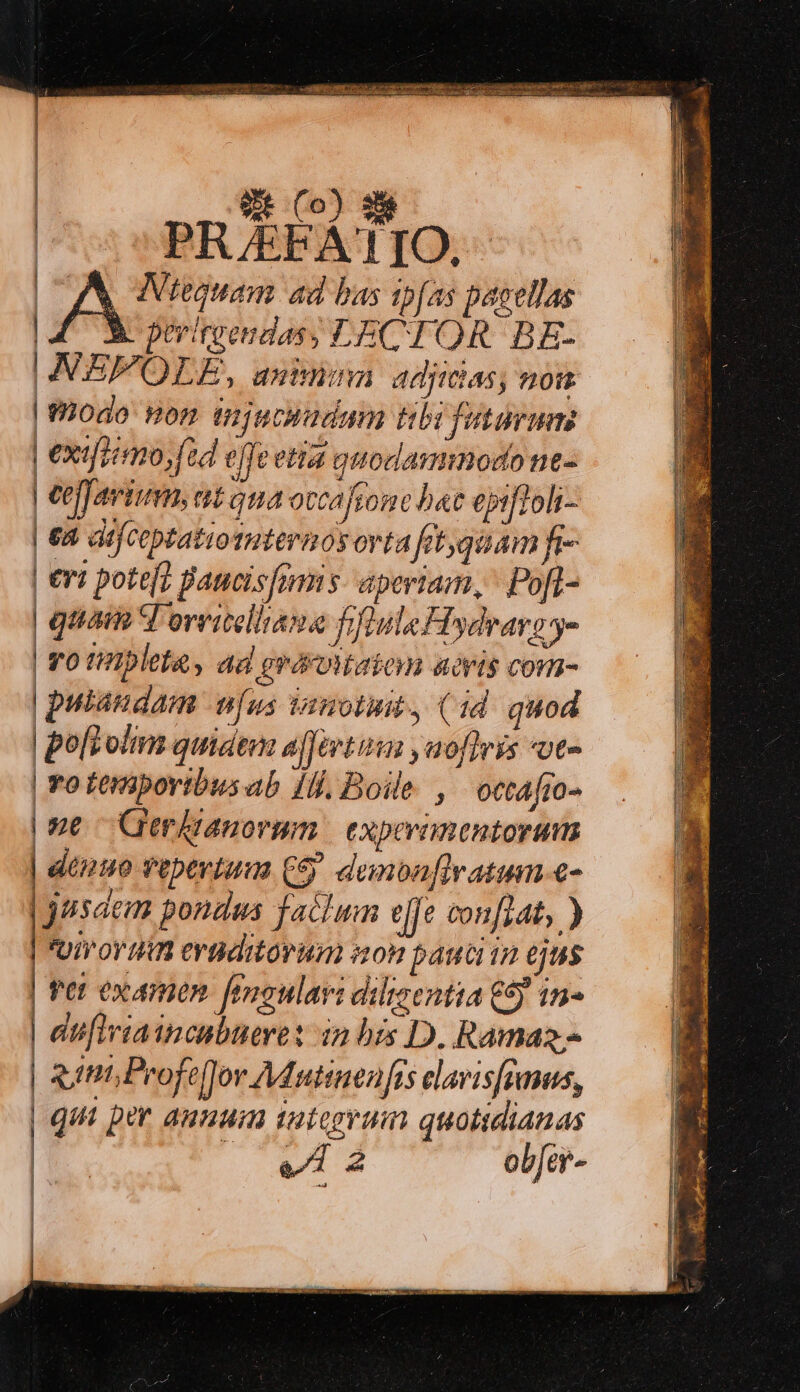 (o)
PRÆFATIO.
ANtequam ad has ipſas pagellas
perlegendas, LECTOR BE-
NEVOLE, animum adjicias, non
modo non injucundum tibi futurum
exiſtimo, ſed eſſe etiã quodammodo ne-
ceſſarium, ut qua occaſione hæc epiſtoli-
ca diſceptatio internos orta ſit, quam fi-
eri poteſt paucisſimis aperiam. Poſt-
quam Torricellianæ fiſtulæ Hydrargy-
ro impletæ, ad gravitatem aëris com-
putandam uſus innotuit, (id quod
poſt olim quidem aſſertum, noſtris ve-
ro temporibus ab Ill. Boile, occaſio-
ne Gerkianorum experimentorum
denuo repertum & demonſtratum e-
jusdem pondus factum eſſe conſtat, )
virorum eruditorum non pauci in ejus
rei examen ſingulari diligentia & in-
duſtria incubuere: in his D. Ramaz-
zini, Profeſſor Mutinenſis clarisſimus,
qui per annum integrum quotidianas
A 2 obſer-